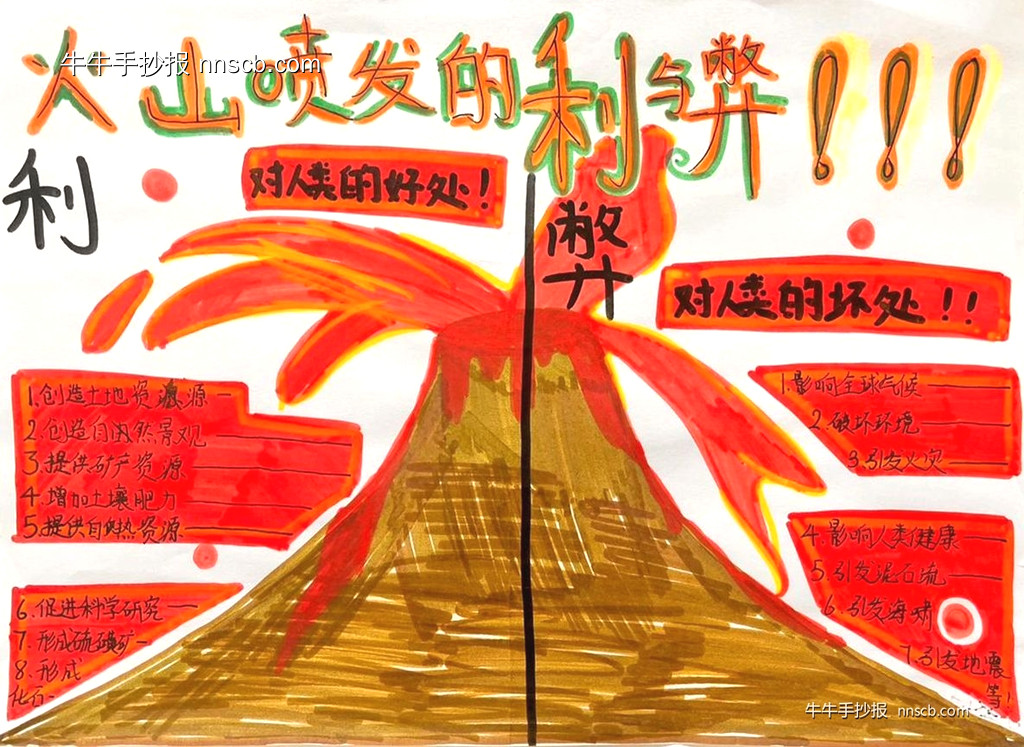 火山喷发的利与弊!!!
牛牛手抄报 nnscb.com
利
对人类的好处!
弊
对人类的坏处!!
1.创造土地资源源
2.创造自然景观
3.提供矿产资源
4.增加土壤肥力
5.提供自热资源
6.促进科学研究
7.形成硫磺矿
8.形成
化石
1.影响全球气候
2.破坏环境
3.引发火灾
4.影响人类健康
5.引发泥石流
6.引发海啸
7.引发地震
等!
牛牛手抄报 nnscb.com